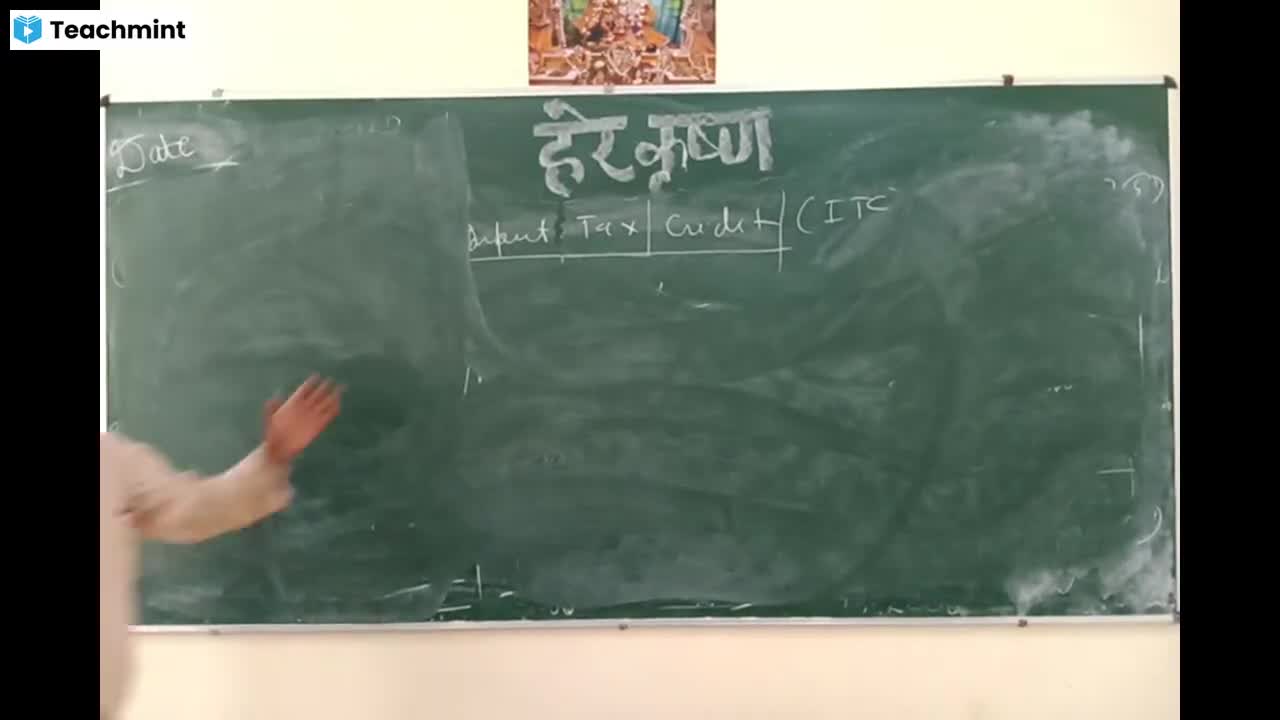 Teachmint
हरे कृष्ण
Date
Input Tax Credit (ITC